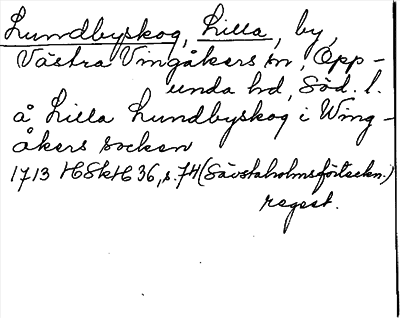 Lundbyskog, Lilla, by,
Västra Vingåkers sn, Opp-
unda hd, Söd. l.
å Lilla Lundbyskog i Wing-
åkers socken
1713 HSkH 36, s. 74 (Sävstaholmsförteckn.)
regest.